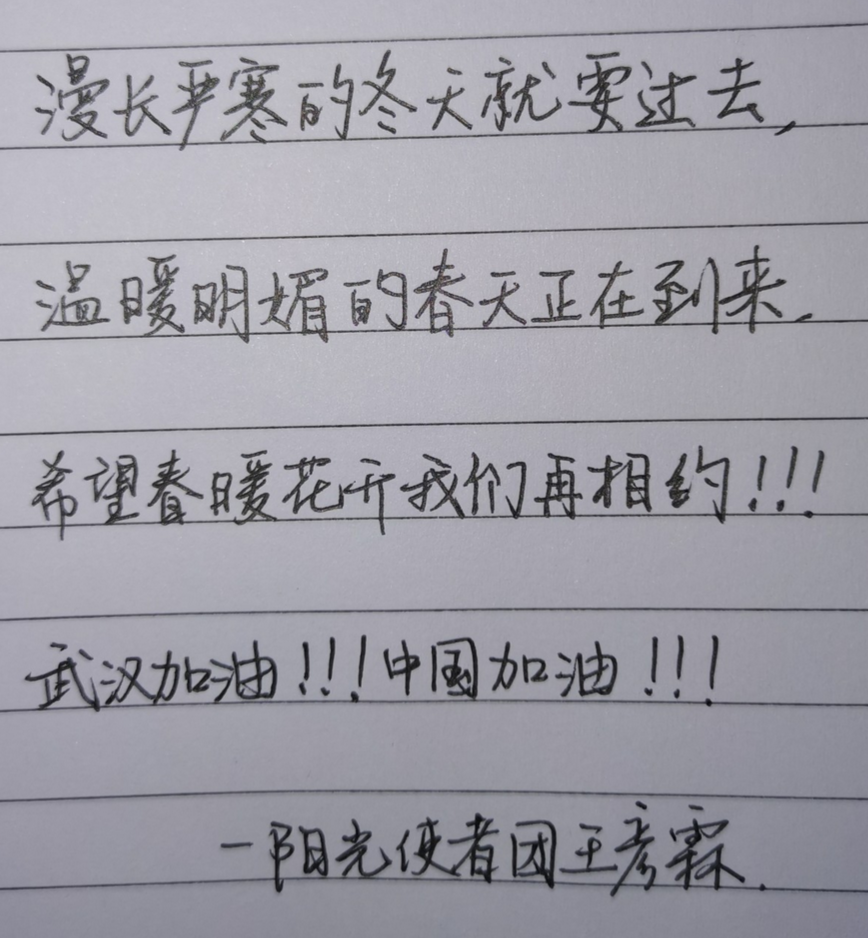 漫长严寒的冬天就要过去,
温暖明媚的春天正在到来.
希望春暖花开我们再相约!!!
武汉加油!!!中国加油!!!
—阳光使者团王彦霖.